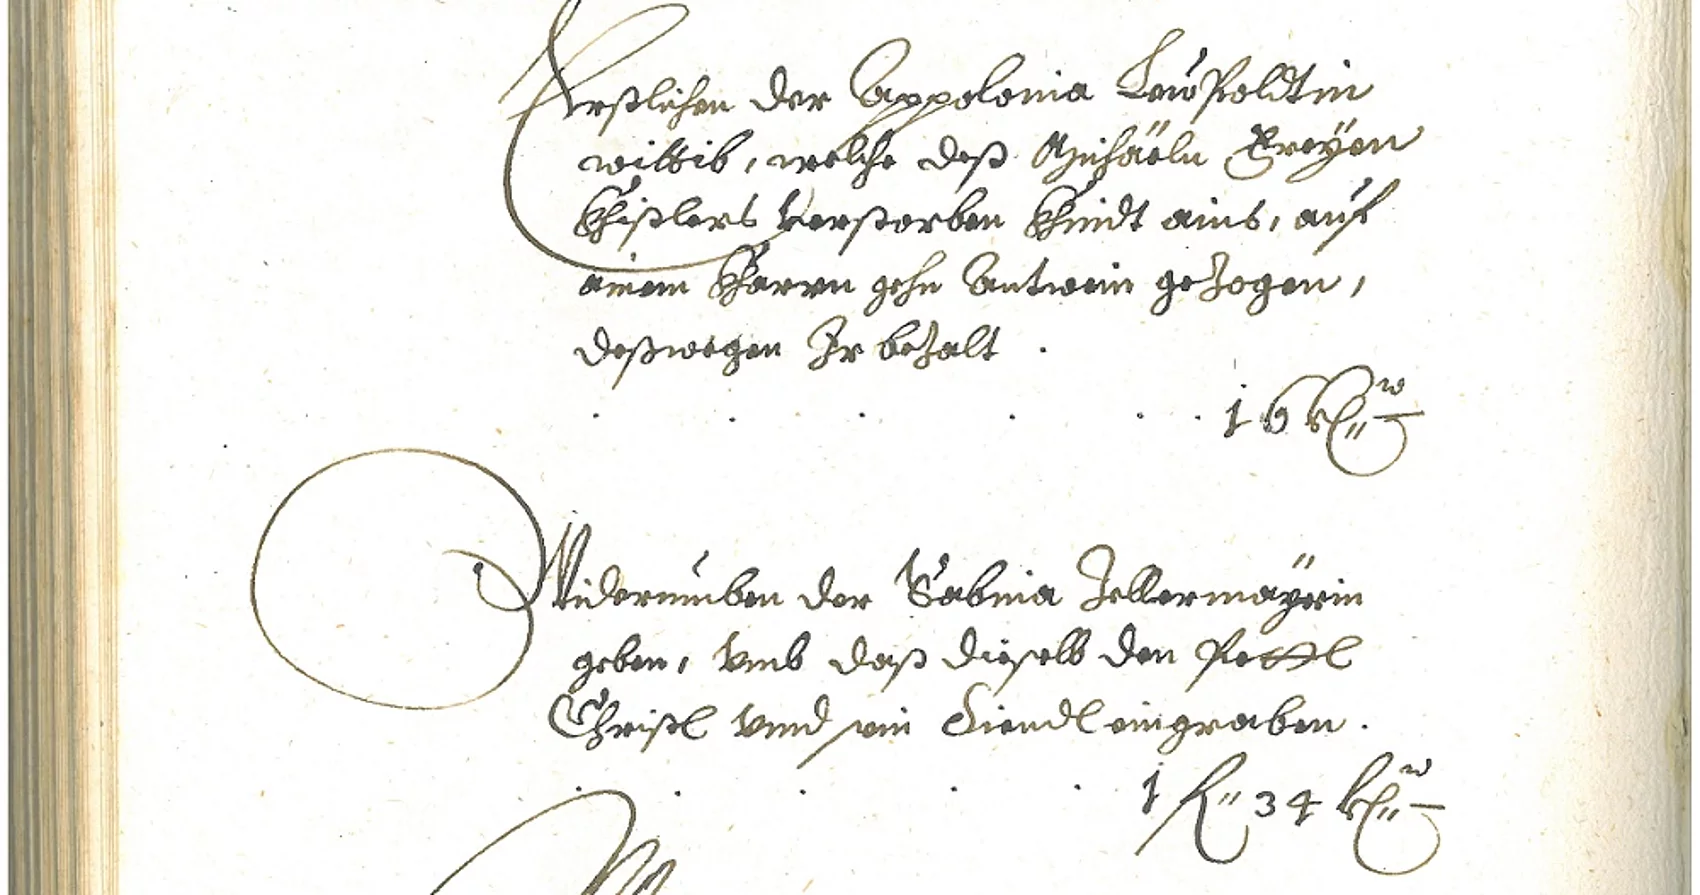 Erstlichen der Appolonia Leupoldtin
wittib, welche deß Michäeln Preÿen
Khistlers verstorben Khindt ains, auf
ainem Kharrn gehn Antwein gezogen,
deßwegen Ir bezalt .
16 kr
Widerumben der Sabina Zellermäÿrin
geben, vmb daß dieselb den Pettl
Christl vnnd sein Diendl eingraben .
1 fl 34 kr